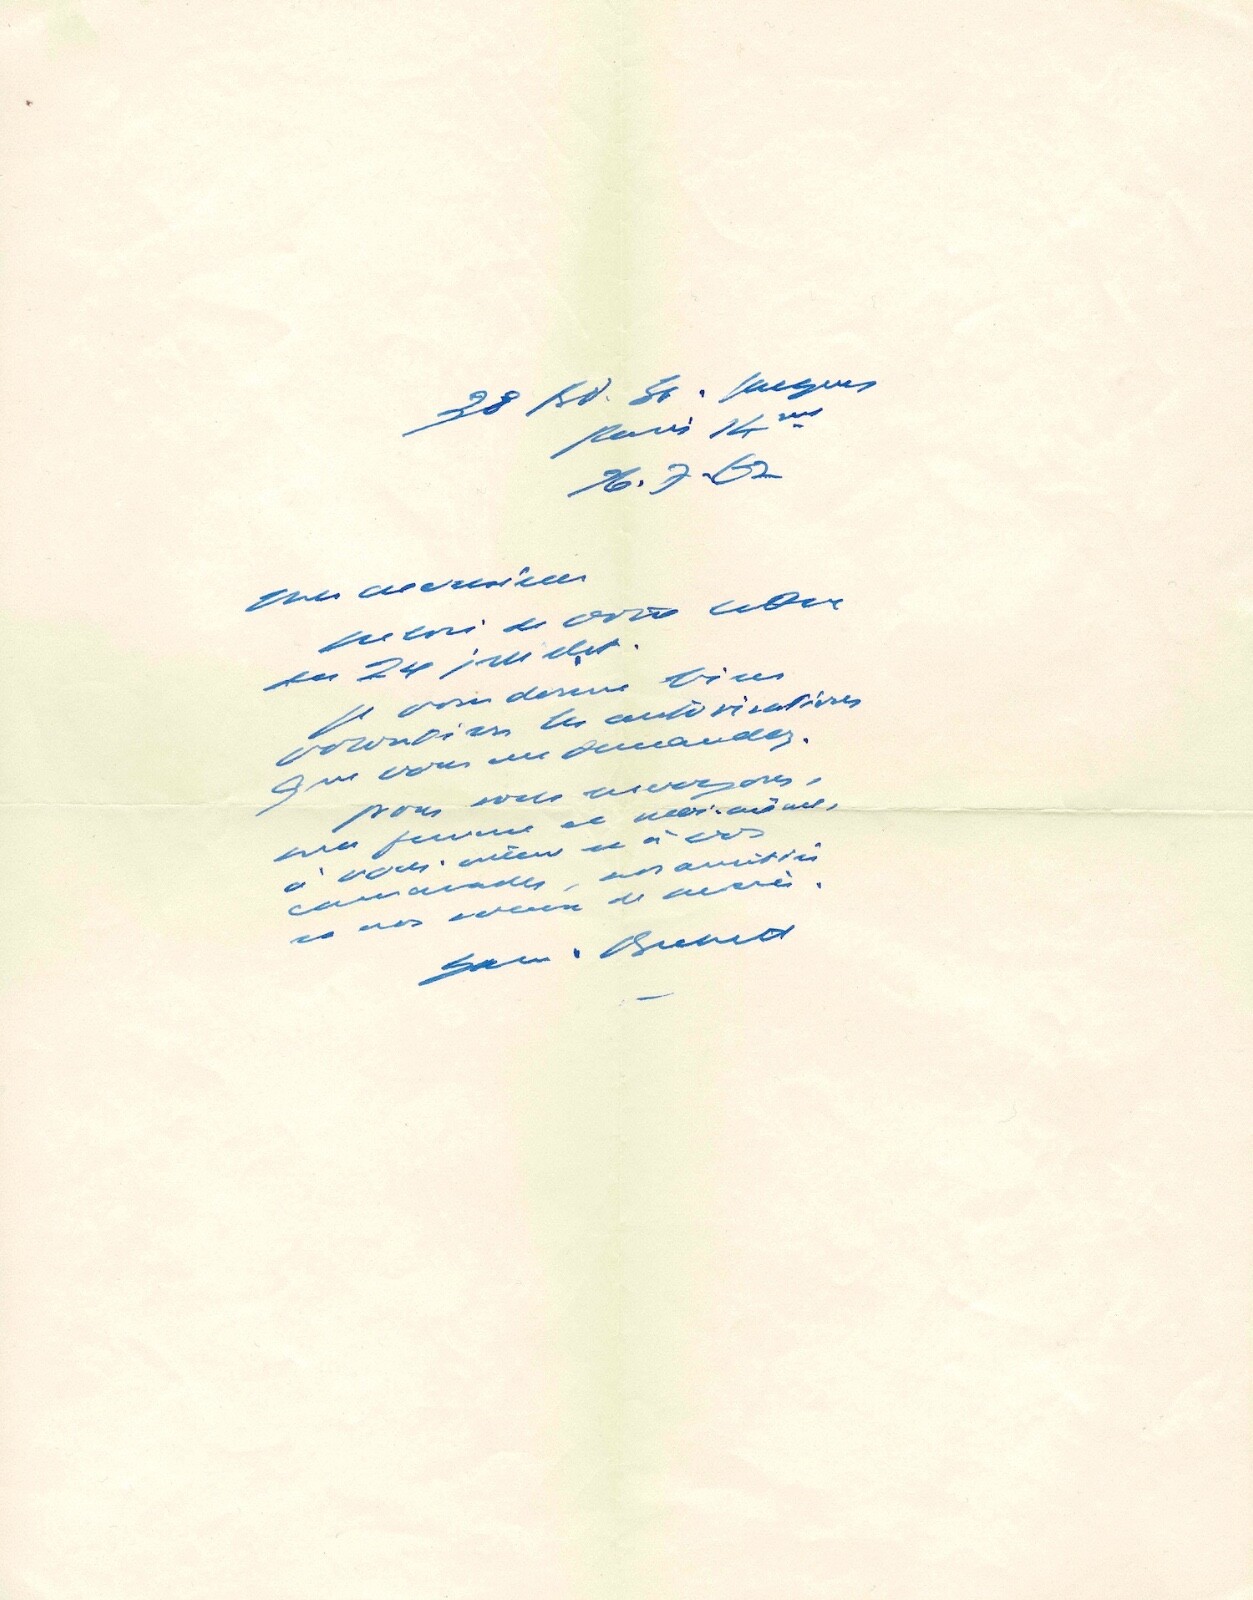 38 Bd. St. Jacques
Paris 14me
26.7.62
Mes
Merci de votre lettre
du 24 juillet.
Je vous donne bien
volontiers les autorisations
que vous me demandez.
Nous vous envoyons,
ma femme et moi-même,
à vous-même et à vos
camarades, nos amitiés
et nos voeux de succès.
Sam. Beckett